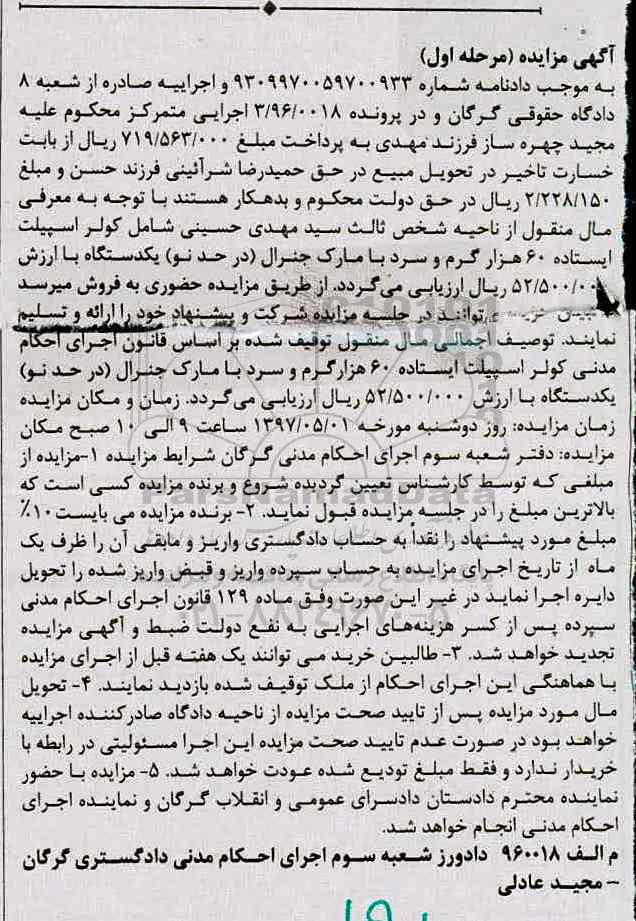 آگهی مزایده (مرحله اول)
به موجب دادنامه شماره ۹۳۰۹۹۷۰۰۵۹۷۰۰۹۳۳ و اجراییه صادره از شعبه ۸
دادگاه حقوقی گرگان و در پرونده ۳/۹۶/۰۰۱۸ اجرایی متمرکز محکوم علیه
مجید چهره ساز فرزند مهدی به پرداخت مبلغ ۷۱۹/۵۶۳/۰۰۰ ریال از بابت
خسارت تاخیر در تحویل مبیع در حق حمیدرضا شرآئینی فرزند حسن و مبلغ
۲/۲۲۸/۱۵۰ ریال در حق دولت محکوم و بدهکار هستند با توجه به معرفی
مال منقول از ناحیه شخص ثالث سید مهدی حسینی شامل کولر اسپیلت
ایستاده ۶۰ هزار گرم و سرد با مارک جنرال (در حد نو) یکدستگاه با ارزش
۵۲/۵۰۰/۰۰۰ ریال ارزیابی می‌گردد. از طریق مزایده حضوری به فروش میرسد
توانند در جلسه مزایده شرکت و پیشنهاد خود را ارائه و تسلیم
نمایند. توصیف اجمالی مال منقول توقیف شده بر اساس قانون اجرای احکام
مدنی کولر اسپیلت ایستاده ۶۰ هزارگرم و سرد با مارک جنرال (در حد نو)
یکدستگاه با ارزش ۵۲/۵۰۰/۰۰۰ ریال ارزیابی می‌گردد. زمان و مکان مزایده
زمان مزایده: روز دوشنبه مورخه ۱۳۹۷/۰۵/۰۱ ساعت ۹ الی ۱۰ صبح مکان
مزایده: دفتر شعبه سوم اجرای احکام مدنی گرگان شرایط مزایده ۱-مزایده از
مبلغی که توسط کارشناس تعیین گردیده شروع و برنده مزایده کسی است که
بالاترین مبلغ را در جلسه مزایده قبول نماید. ۲- برنده مزایده می بایست ۱۰٪
مبلغ مورد پیشنهاد را نقداً به حساب دادگستری واریز و مابقی آن را ظرف یک
ماه از تاریخ اجرای مزایده به حساب سپرده واریز و قبض واریز شده را تحویل
دایره اجرا نماید در غیر این صورت وفق ماده ۱۲۹ قانون اجرای احکام مدنی
سپرده پس از کسر هزینه‌های اجرایی به نفع دولت ضبط و آگهی مزایده
تجدید خواهد شد. ۳- طالبین خرید می توانند یک هفته قبل از اجرای مزایده
با هماهنگی این اجرای احکام از ملک توقیف شده بازدید نمایند. ۴- تحویل
مال مورد مزایده پس از تایید صحت مزایده از ناحیه دادگاه صادرکننده اجراییه
خواهد بود در صورت عدم تایید صحت مزایده این اجرا مسئولیتی در رابطه با
خریدار ندارد و فقط مبلغ تودیع شده عودت خواهد شد. ۵- مزایده با حضور
نماینده محترم دادستان دادسرای عمومی و انقلاب گرگان و نماینده اجرای
احکام مدنی انجام خواهد شد.
م الف ۹۶۰۰۱۸ دادورز شعبه سوم اجرای احکام مدنی دادگستری گرگان
– مجید عادلی